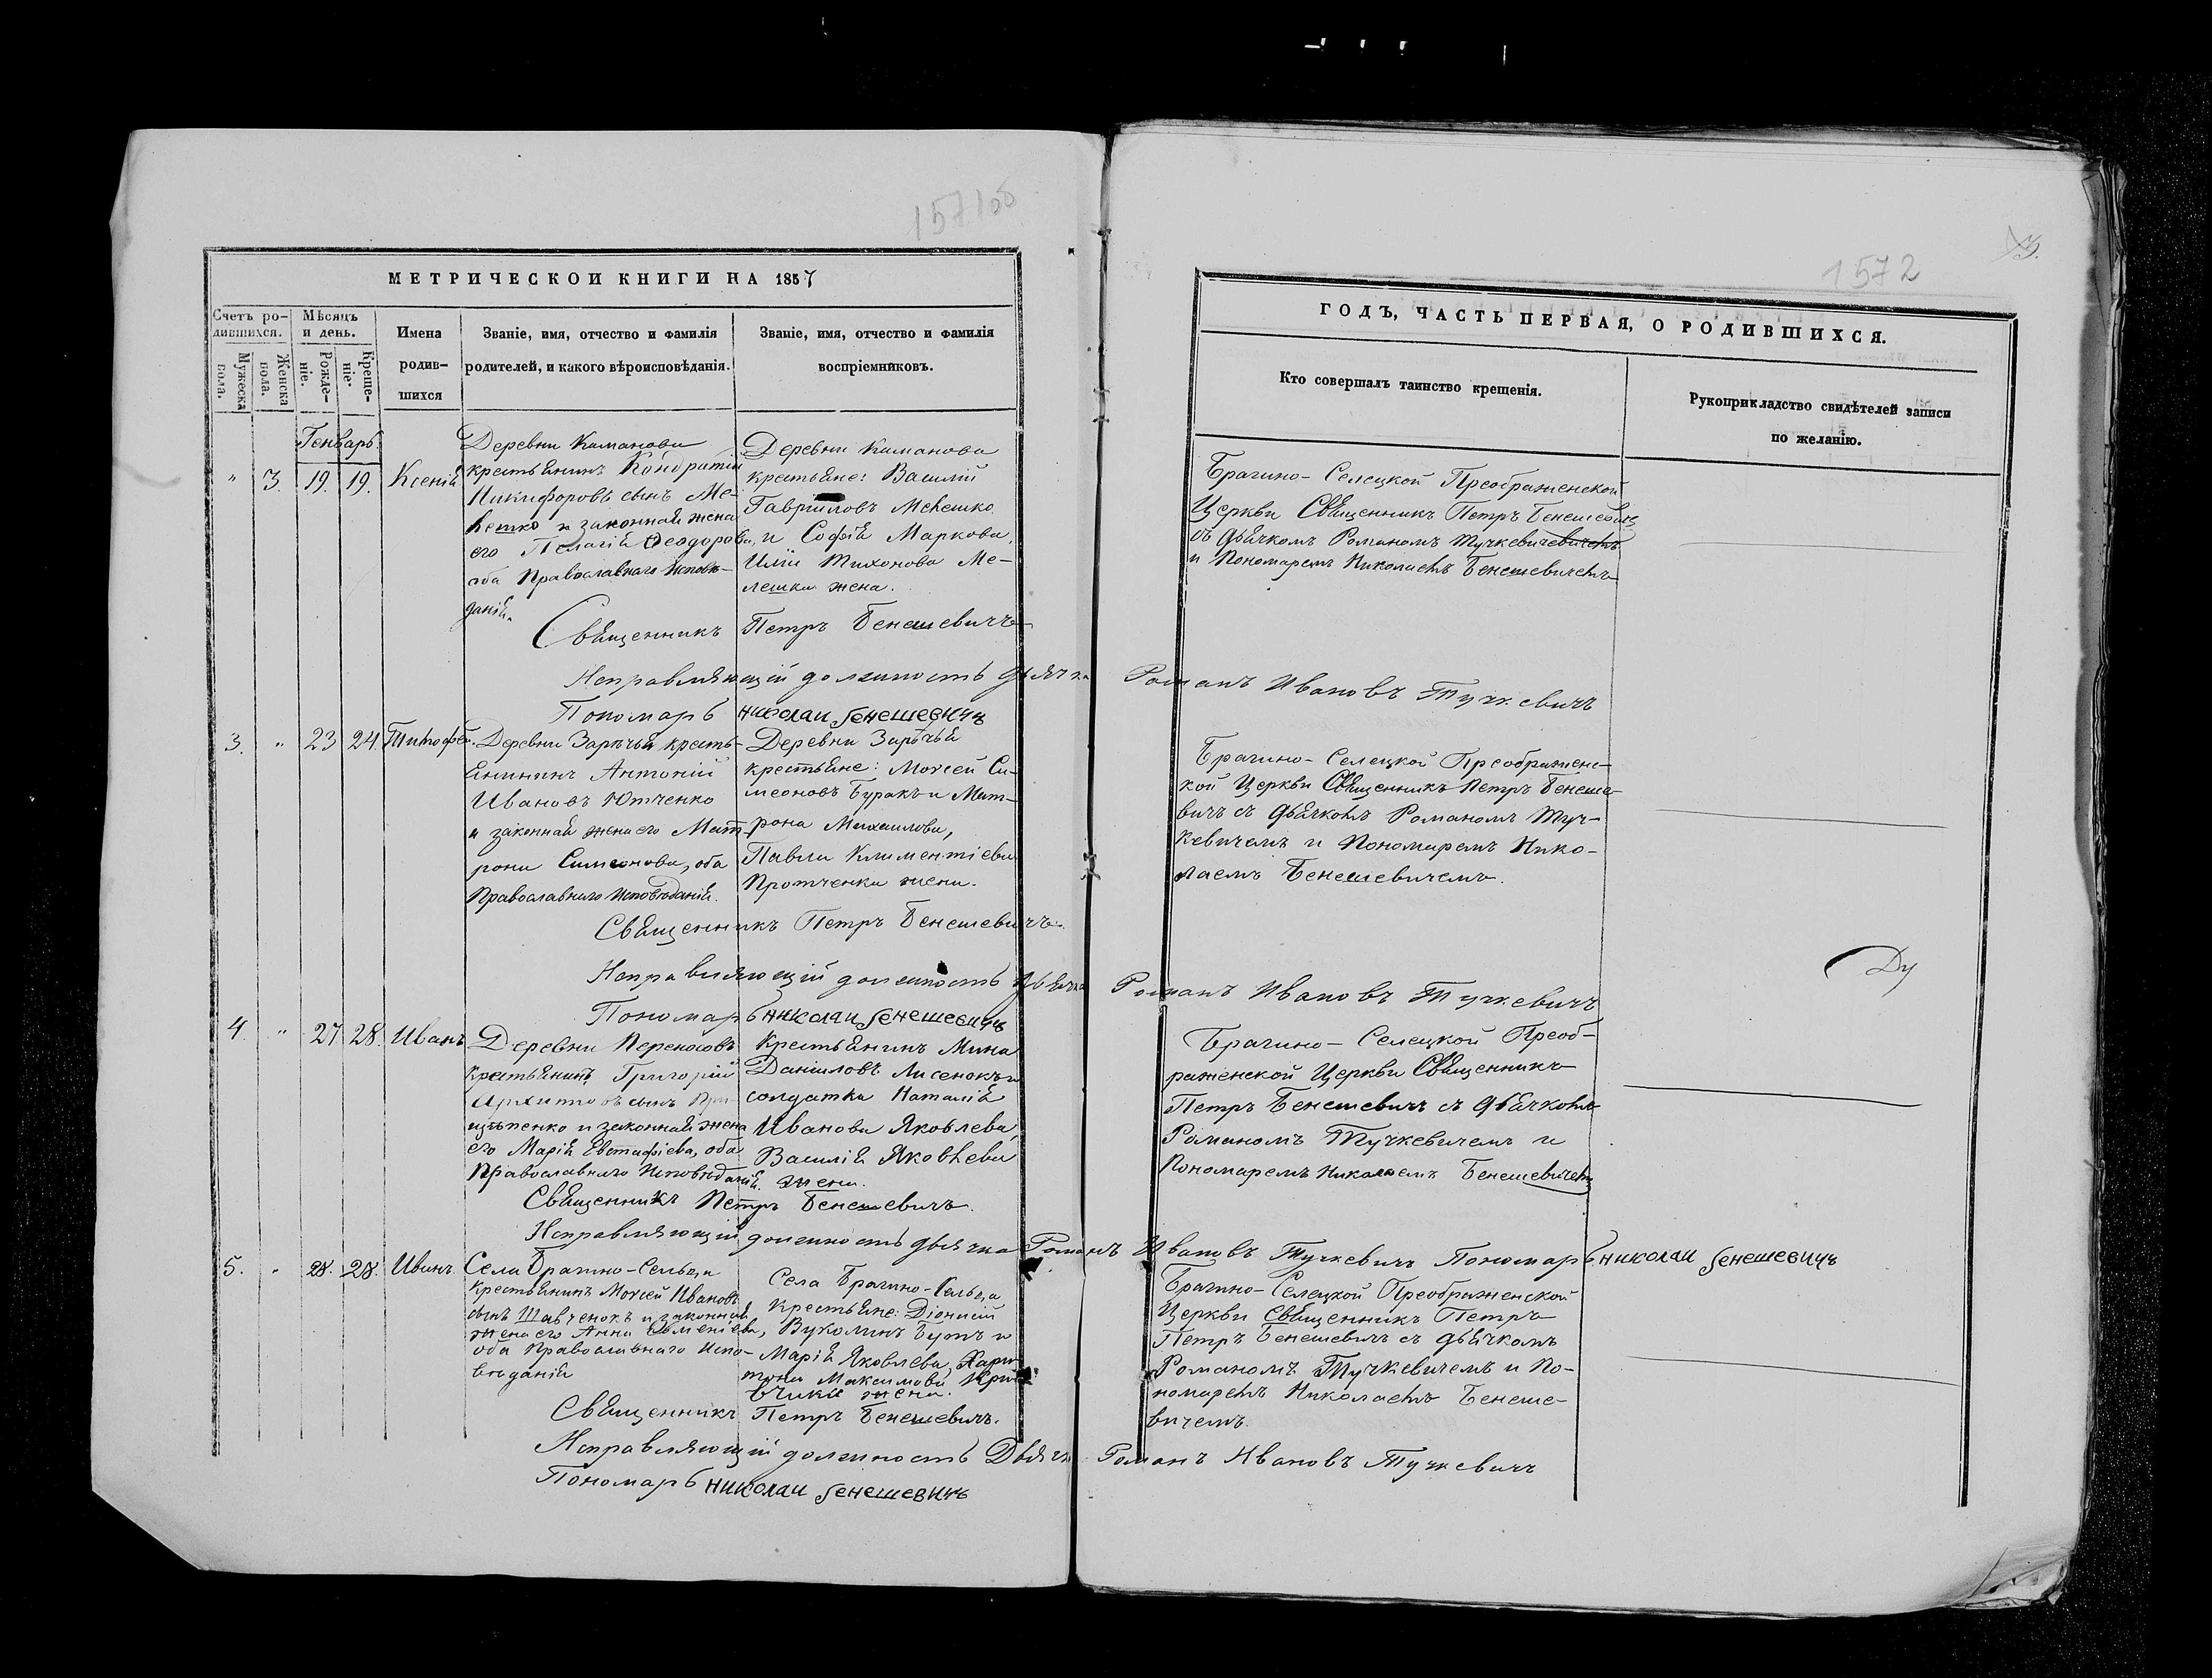 157100
МЕТРИЧЕСКОЙ КНИГИ НА 1857
Счетъ ро-
дившихся.
Мужеска
пола.
Женска
пола.
Мѣсяцъ
и день.
Рожде-
ніе.
Креще-
ніе.
Имена
родив-
шихся
Званіе, имя, отчество и фамилія
родителей, и какого вѣроисповѣданія.
Званіе, имя, отчество и фамилія
воспріемниковъ.
Генварь
" 3. 19. 19. Ксенія
Деревни Каманова
крестьянинъ Кондратій
Никифоровъ сынъ Ме-
лешко и законная жена
его Пелагія Ѳеодорова,
оба Православнаго Исповѣ-
данія.
Деревни Каманова
крестьяне: Василій
Гавріиловъ Мелешко
и Софія Маркова,
Иліи Тихонова Ме-
лешка жена.
Священникъ Петръ Бенешевичъ
Исправляющій должность дьячка Романъ Ивановъ Тучкевичъ
Пономарь Николай Бенешевичъ
3. " 23 24. Тимофей.
Деревни Зарѣчья кресть-
янининъ Антоній
Ивановъ Ютченко
и законная жена его Мат-
рона Симеонова, оба
Православнаго Исповѣданія.
Деревни Зарѣчья
крестьяне: Моѵсей Си-
меоновъ Буракъ и Мат-
рона Михаилова,
Павла Климентіева
Протченка жена.
Священникъ Петръ Бенешевичъ.
Исправляющій должность дьячка Романъ Ивановъ Тучкевичъ
Пономарь Николай Бенешевичъ
4. " 27. 28. Иванъ
Деревни Переносовъ
крестьянинъ Григорій
сынъ
и законная жена
его Марія Евстафіева, оба
Православнаго Исповѣданія.
Крестьянинъ Мина
Даніиловъ Лисенокъ и
солдатка Наталія
Иванова Яковлева,
Василія Яковлева
жена.
Священникъ Петръ Бенешевичъ.
Исправляющій должность дьячка Романъ Ивановъ Тучкевичъ Пономарь Николай Бенешевичъ
5. " 28. 28. Иванъ
Села Брагино-Сельца
крестьянинъ Моѵсей Ивановъ
сынъ Шавченокъ и законная
жена его Анна
оба Православнаго Испо-
вѣданія
Села Брагино-Сельца
крестьяне: Діонисій
Вуколинъ Бутъ и
Марія Яковлева, Хари-
тона Максимова Кри-
вчика жена.
Священникъ Петръ Бенешевичъ.
Исправляющій должность Дьячка Романъ Ивановъ Тучкевичъ
Пономарь Николай Бенешевичъ
1572
3.
ГОДЪ, ЧАСТЬ ПЕРВАЯ, О РОДИВШИХСЯ.
Кто совершалъ таинство крещенія.
Рукоприкладство свидѣтелей записи
по желанію.
Брагино-Селецкой Преображенской
Церкви Священникъ Петръ Бенешевичъ
съ дьячкомъ Романомъ Тучкевичевичемъ
и Пономаремъ Николаемъ Бенешевичемъ
Брагино-Селецкой Преображенс-
кой Церкви Священникъ Петръ Бенеше-
вичъ съ дьячкомъ Романомъ Туч-
кевичемъ и Пономаремъ Нико-
лаемъ Бенешевичемъ.
Ду
Брагино-Селецкой Преоб-
раженской Церкви Священникъ
Петръ Бенешевичъ съ дьячкомъ
Романомъ Тучкевичемъ и
Пономаремъ Николаемъ Бенешевичемъ
Брагино-Селецкой Преображенской
Церкви Священникъ Петръ
Петръ Бенешевичъ съ дьячкомъ
Романомъ Тучкевичемъ и По-
номаремъ Николаемъ Бенеше-
вичемъ.